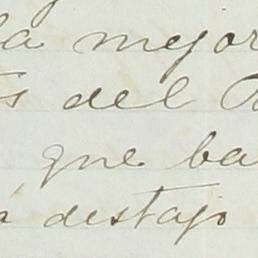 la mejor
s del
que ba
á destajo